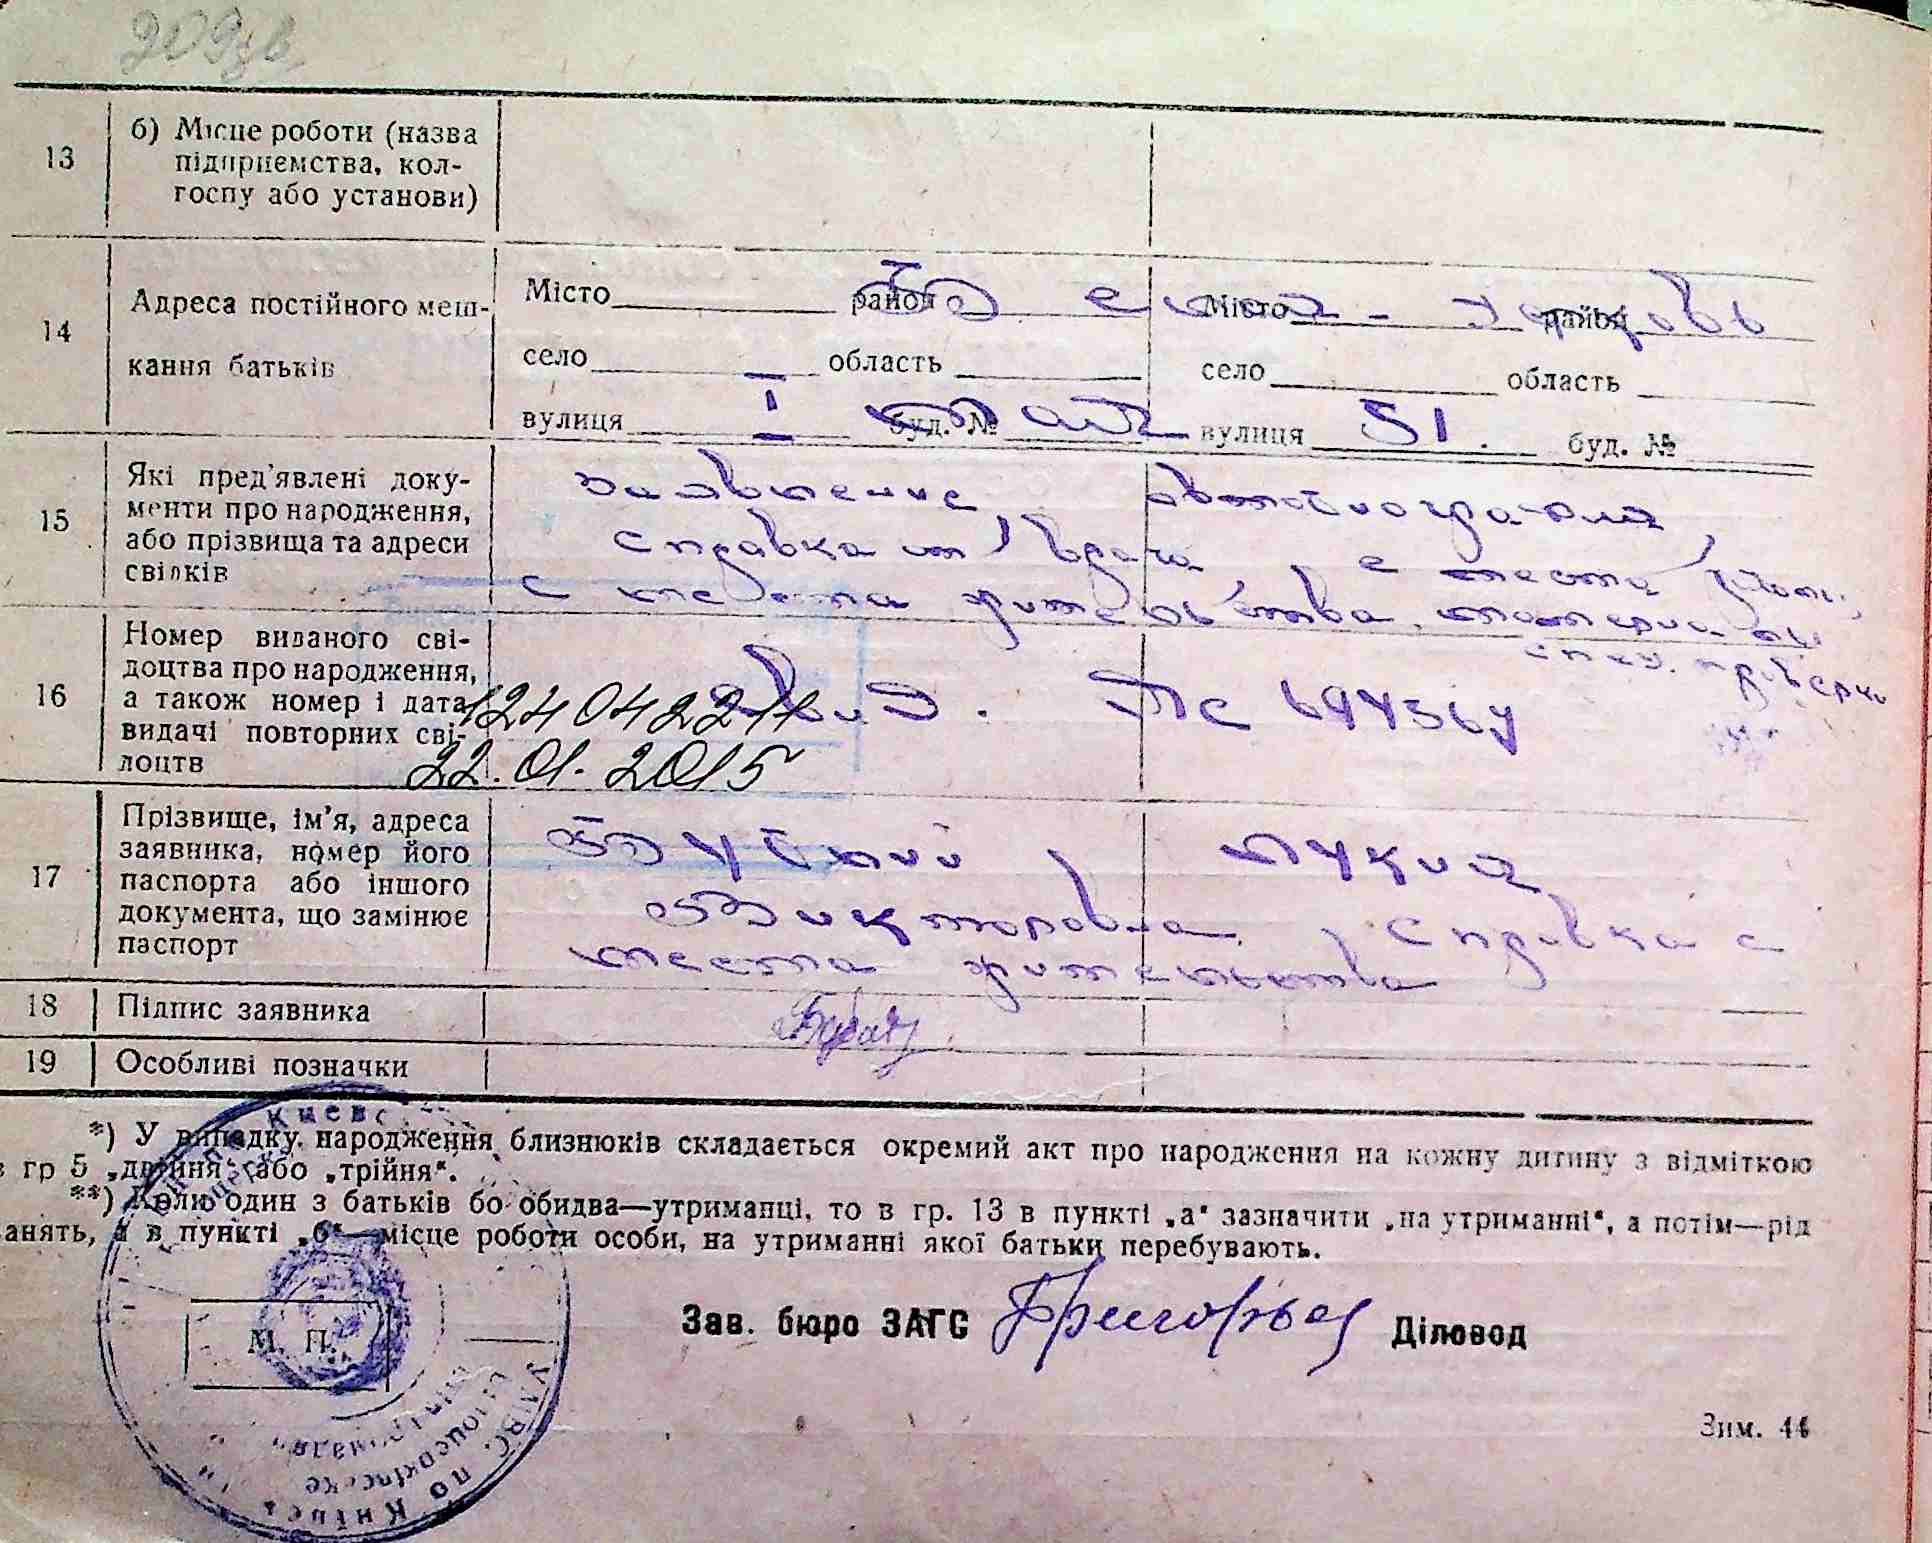 13
б) Місце роботи (назва
підприємства, кол-
госпу або установи)
14
Адреса постійного меш-
кання батьків
Місто район
село область
вулиця I Мая буд. №
Місто район
село область
вулиця 51. буд. №
15
Які пред'явлені доку-
менти про народження,
або прізвища та адреси
свідків
заявление, автобиография,
справка от врача, с места
с места жительства, материалы
спец. проверки
16
Номер виданого сві-
доцтва про народження,
а також номер і дата
видачі повторних сві-
доцтв
22.01.2015
17
Прізвище, ім'я, адреса
заявника, номер його
паспорта або іншого
документа, що замінює
паспорт
Викторовна, справка с
места жительства
18 Підпис заявника
19 Особливі позначки
*) У випадку народження близнюків складається окремий акт про народження на кожну дитину з відміткою
в гр 5 „двійня“ або „трійня“.
**) Колю один з батьків бо обидва—утриманці, то в гр. 13 в пункті „а“ зазначити „на утриманні“, а потім—рід
занять, а в пункті „б“—місце роботи особи, на утриманні якої батьки перебувають.
М. П.
Зав. бюро ЗАГС Діловод
Зим. 44